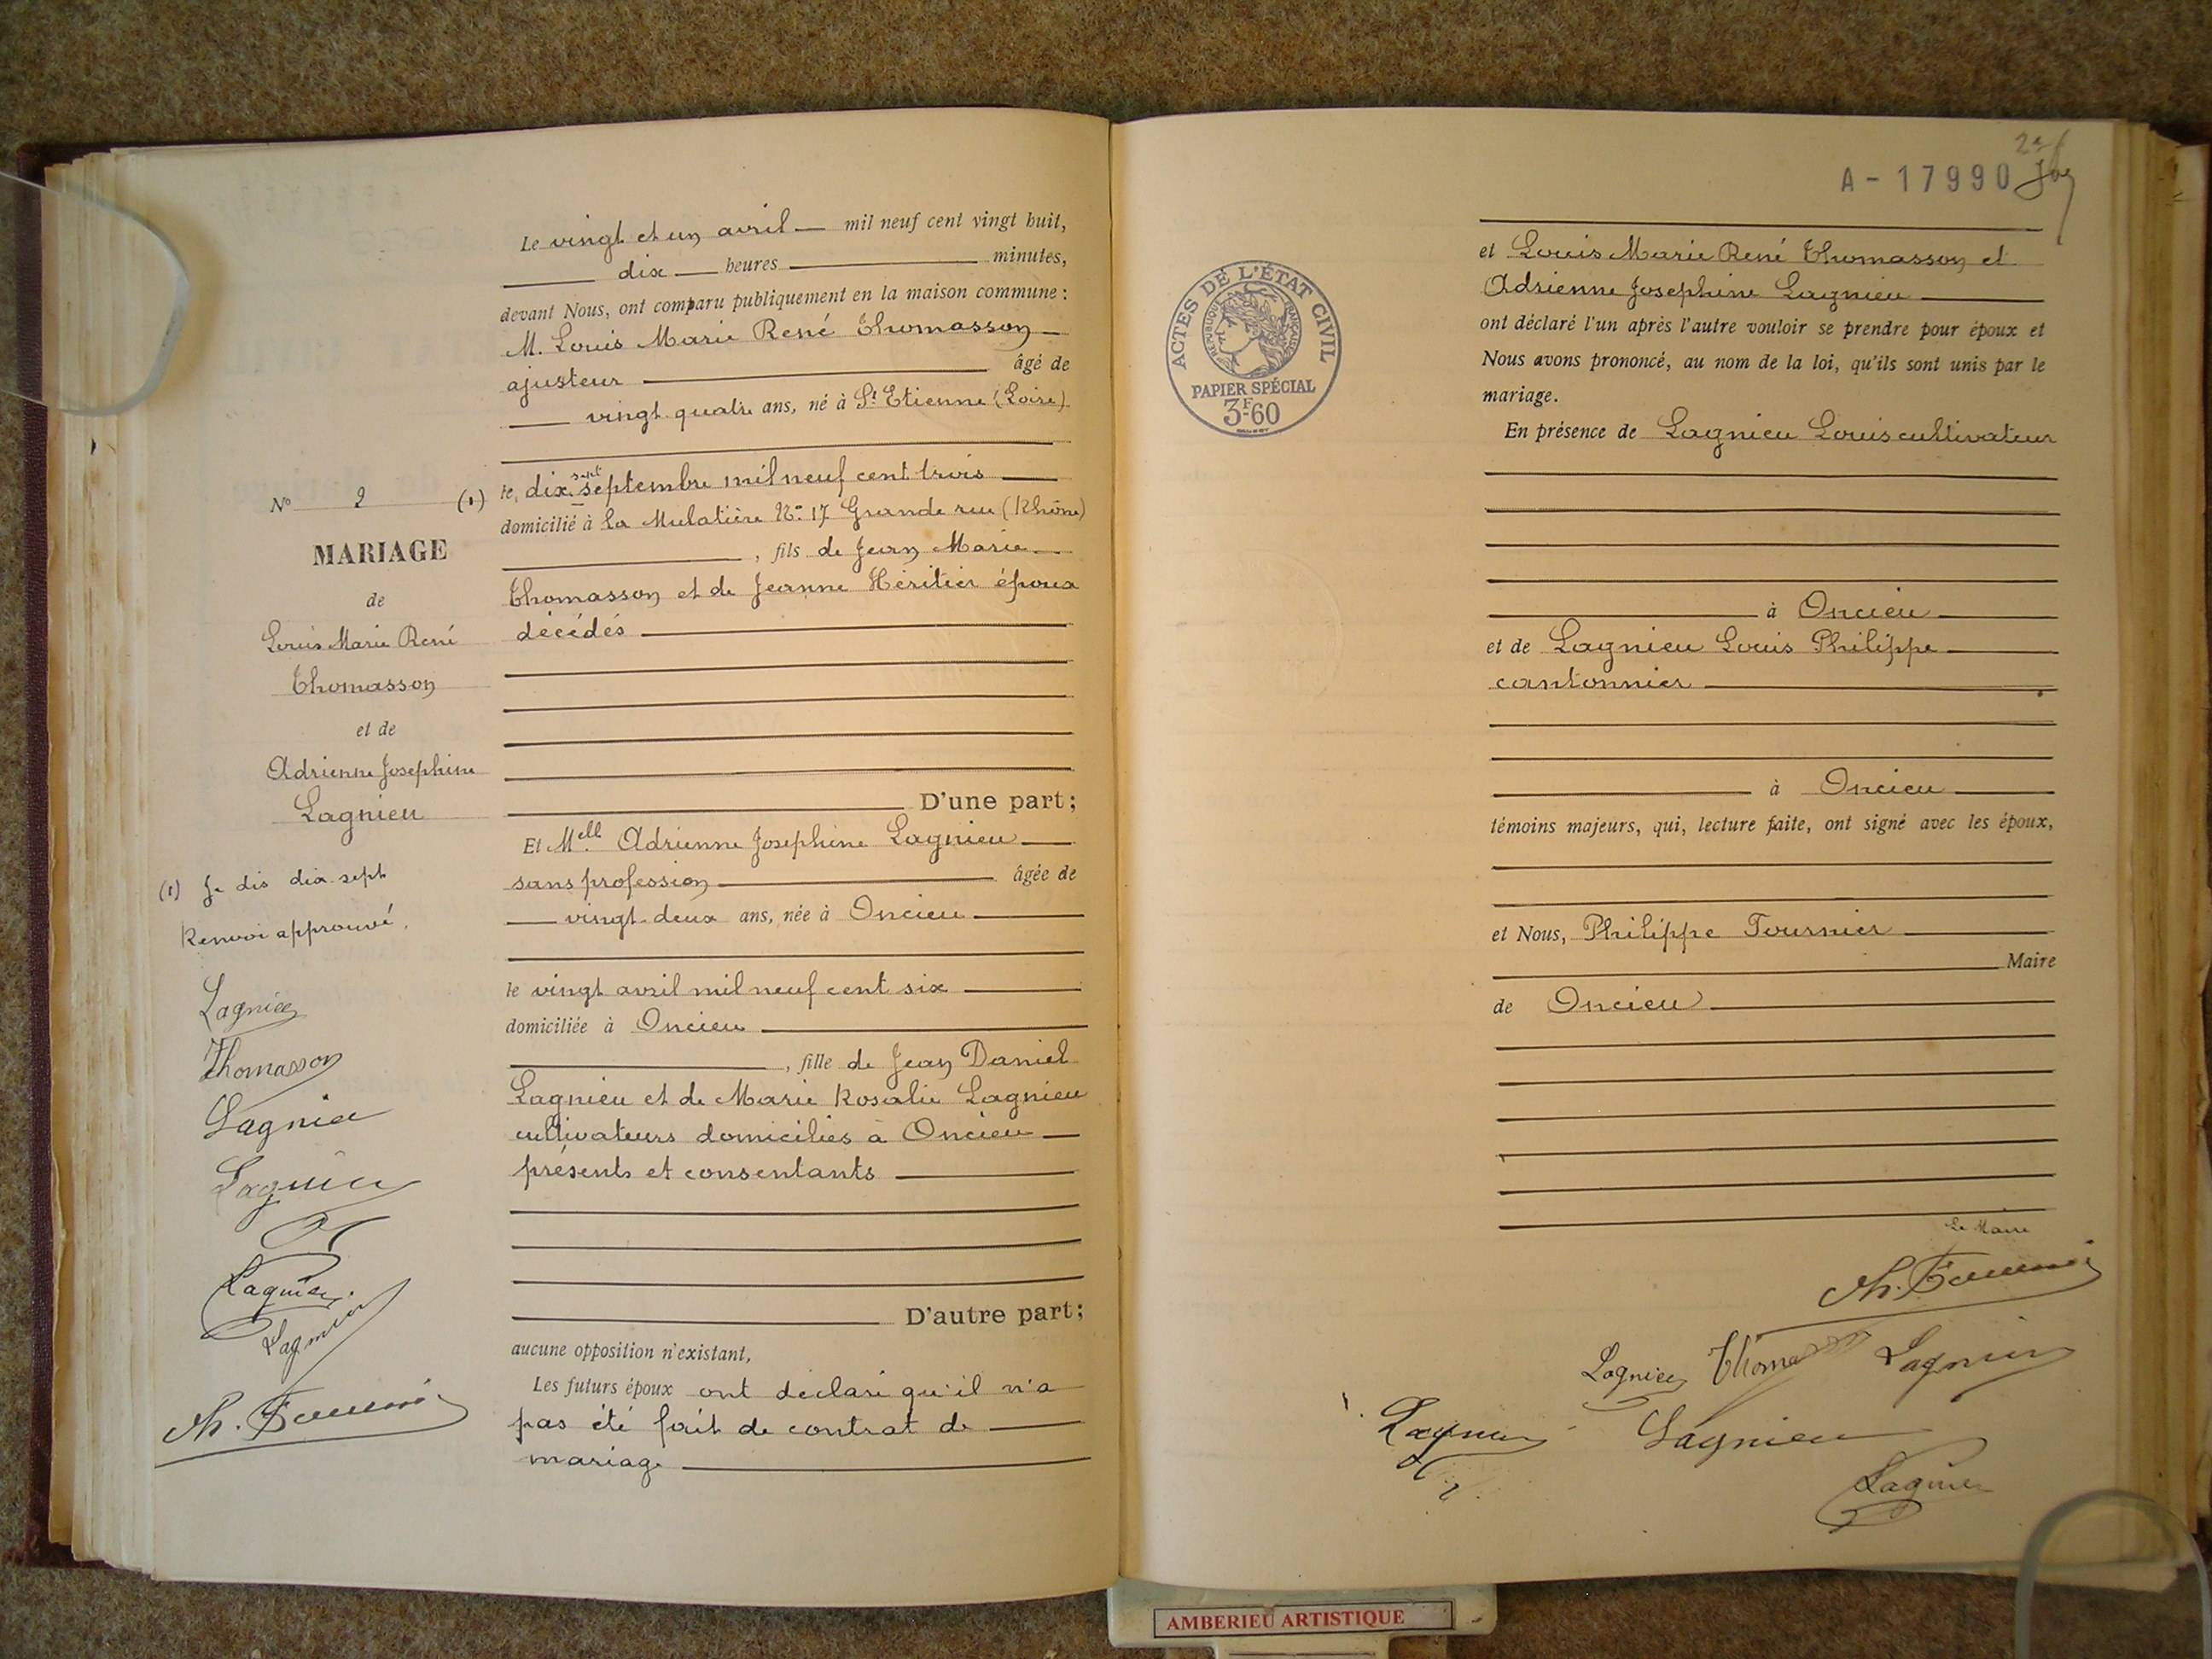 Le vingt et un avril mil neuf cent vingt huit,
dix heures minutes,
devant Nous, ont comparu publiquement en la maison commune :
M. Louis Marie René Thomasson
ajusteur âgé de
vingt quatre ans, né à St Etienne (Loire)
sept
le, dix septembre mil neuf cent trois
domicilié à La Mulatière No 17 Grande rue (Rhône)
, fils de Jean Marie
Thomasson et de Jeanne Héritier époux
décédés
D'une part ;
Et Mell Adrienne Josephine Lagnieu
sans profession âgée de
vingt-deux ans, née à Oncieu
le vingt avril mil neuf cent six
domiciliée à Oncieu
, fille de Jean Daniel
Lagnieu et de Marie Rosalie Lagnieu
cultivateurs domiciliés à Oncieu
présents et consentants
D'autre part ;
aucune opposition n'existant,
Les futurs époux ont déclaré qu'il n'a
pas été fait de contrat de
mariage
No 2 (1)
MARIAGE
de
Louis Marie René
Thomasson
et de
Adrienne Josephine
Lagnieu
(1) Je dis dix sept
Renvoi approuvé.
Lagnieu
Thomasson
Lagnieu
Lagnieu
Lagnieu
Lagnieu
Ph. Fournier
A-17990
ACTES DE L'ÉTAT CIVIL
RÉPUBLIQUE FRANÇAISE
PAPIER SPÉCIAL
3F60
et Louis Marie René Thomasson et
Adrienne Josephine Lagnieu
ont déclaré l'un après l'autre vouloir se prendre pour époux et
Nous avons prononcé, au nom de la loi, qu'ils sont unis par le
mariage.
En présence de Lagnieu Louis cultivateur
à Oncieu
et de Lagnieu Louis Philippe
cantonnier
à Oncieu
témoins majeurs, qui, lecture faite, ont signé avec les époux,
et Nous, Philippe Fournier
Maire
de Oncieu
Le Maire
Ph. Fournier
Lagnieu Thomasson Lagnieu
Lagnieu Lagnieu
Lagnieu
AMBERIEU ARTISTIQUE